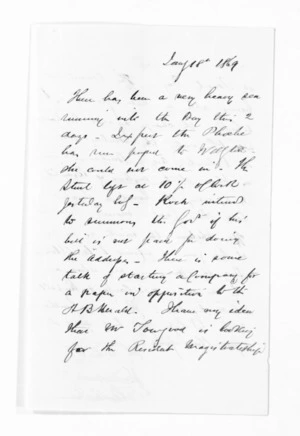 Jany 18th 1869
There has been a very heavy sea
running into the Bay this 2
days - I expect the Phoebe
has run past to Wellgtn
she could not come in. The
Sturt left at 10 
yesterday 
to summons the Govt if his
bill is not paid for doing
the address. There is some
talk of starting a Company for
a paper in opposition to the
H B Herald. I have my idea
that Mr Towgood is looking
for the Resident Magistrateship